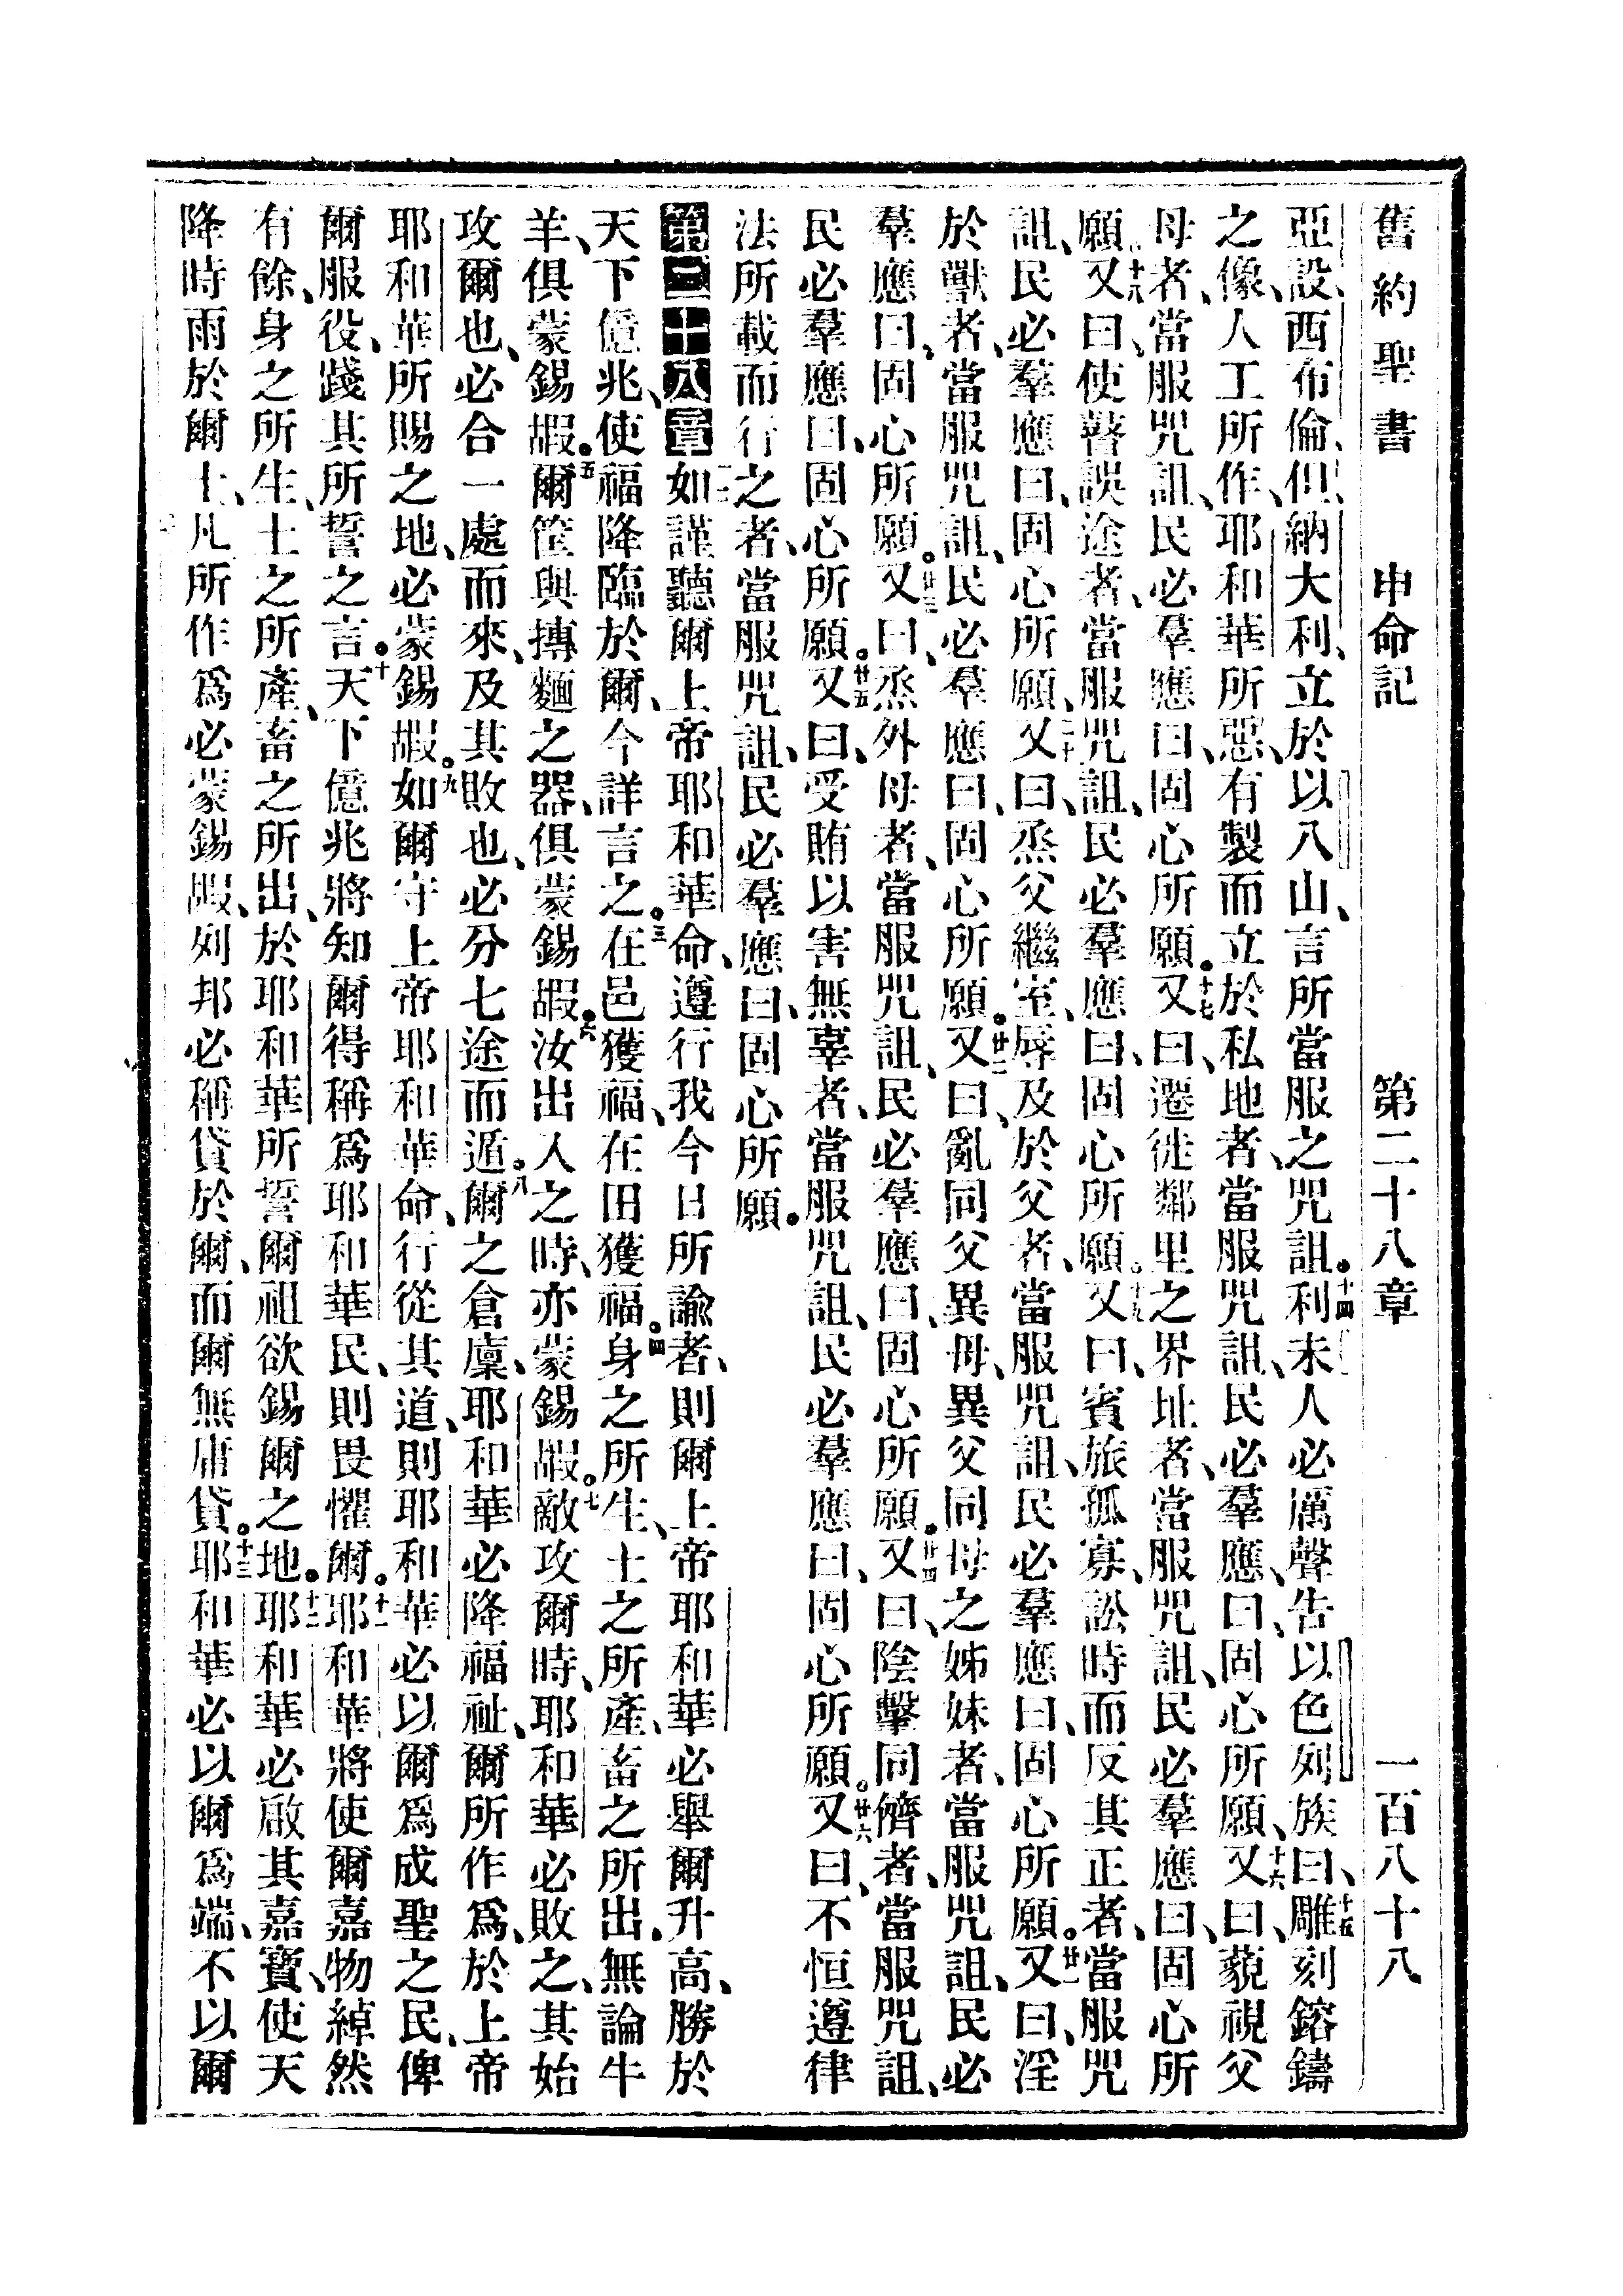 舊約聖書　申命記　第二十八章　一百八十八
亞設、西布倫、但、納大利、立於以八山、言所當服之咒詛。十四利未人必厲聲告以色列族曰、十五雕刻鎔鑄
之像、人工所作、耶和華所惡、有製而立於私地者、當服咒詛、民必羣應曰、固心所願、十六又曰、藐視父
母者、當服咒詛、民必羣應曰、固心所願。十七又曰、遷徙鄰里之界址者、當服咒詛、民必羣應曰、固心所
願、十八又曰、使瞽誤途者、當服咒詛、民必羣應曰、固心所願。十九又曰、賓旅孤寡、訟時而反其正者、當服咒
詛、民必羣應曰、固心所願、二十又曰、烝父繼室、辱及於父者、當服咒詛、民必羣應曰、固心所願。廿一又曰、淫
於獸者、當服咒詛、民必羣應曰、固心所願。廿二又曰、亂同父異母、異父同母之姊妹者、當服咒詛、民必
羣應曰、固心所願。廿三又曰、烝外母者、當服咒詛、民必羣應曰、固心所願。廿四又曰、陰擊同儕者、當服咒詛、
民必羣應曰、固心所願。廿五又曰、受賄以害無辜者、當服咒詛、民必羣應曰、固心所願。廿六又曰、不恒遵律
法所載而行之者、當服咒詛、民必羣應曰、固心所願。
第二十八章一二如謹聽爾上帝耶和華命、遵行我今日所諭者、則爾上帝耶和華必舉爾升高、勝於
天下億兆、使福降臨於爾、今詳言之。三在邑獲福、在田獲福。四身之所生、土之所產、畜之所出、無論牛
羊、俱蒙錫嘏。五爾筐與摶麵之器、俱蒙錫嘏。六汝出入之時、亦蒙錫嘏。七敵攻爾時、耶和華必敗之、其始
攻爾也、必合一處而來、及其敗也、必分七途而遁。八爾之倉廩、耶和華必降福祉、爾所作爲、於上帝
耶和華所賜之地、必蒙錫嘏。九如爾守上帝耶和華命、行從其道、則耶和華必以爾爲成聖之民、俾
爾服役、踐其所誓之言。十天下億兆將知爾得稱爲耶和華民、則畏懼爾。十一耶和華將使爾嘉物綽然
有餘、身之所生、土之所產、畜之所出、於耶和華所誓爾祖欲錫爾之地。十二耶和華必啟其嘉寶、使天
降時雨於爾土、凡所作爲必蒙錫嘏、列邦必稱貸於爾、而爾無庸貸。十三耶和華必以爾爲端、不以爾